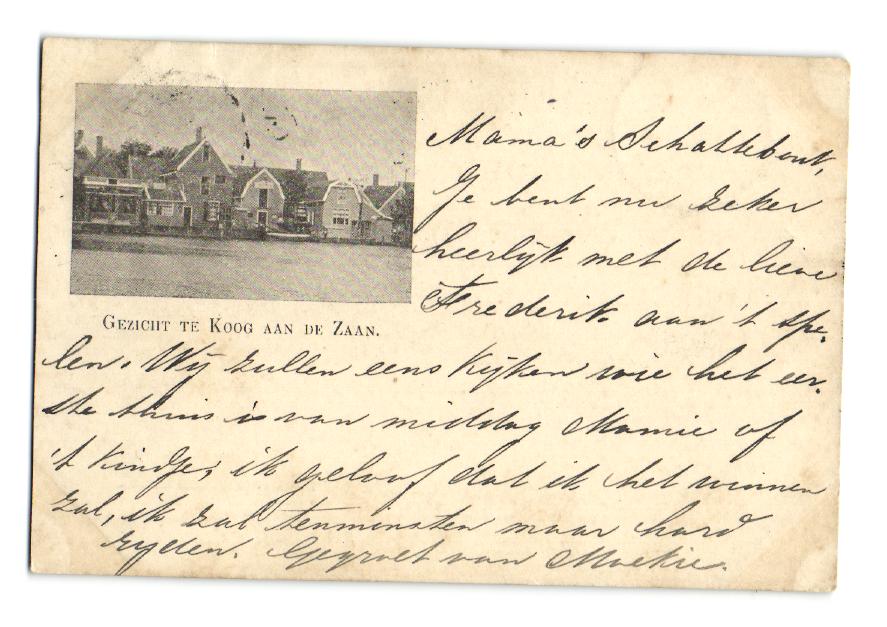 Mama's Schattebout,
Je bent nu zeker
heerlijk met de lieve
Frederik aan 't spe-
GEZICHT TE KOOG AAN DE ZAAN.
len. Wij zullen eens kijken wie het eer-
ste thuis is van middag Mamie of
't kindje; ik geloof dat ik het winnen
zal, ik zal tenminsten maar hard
ryden. Gegroet van Moekie.